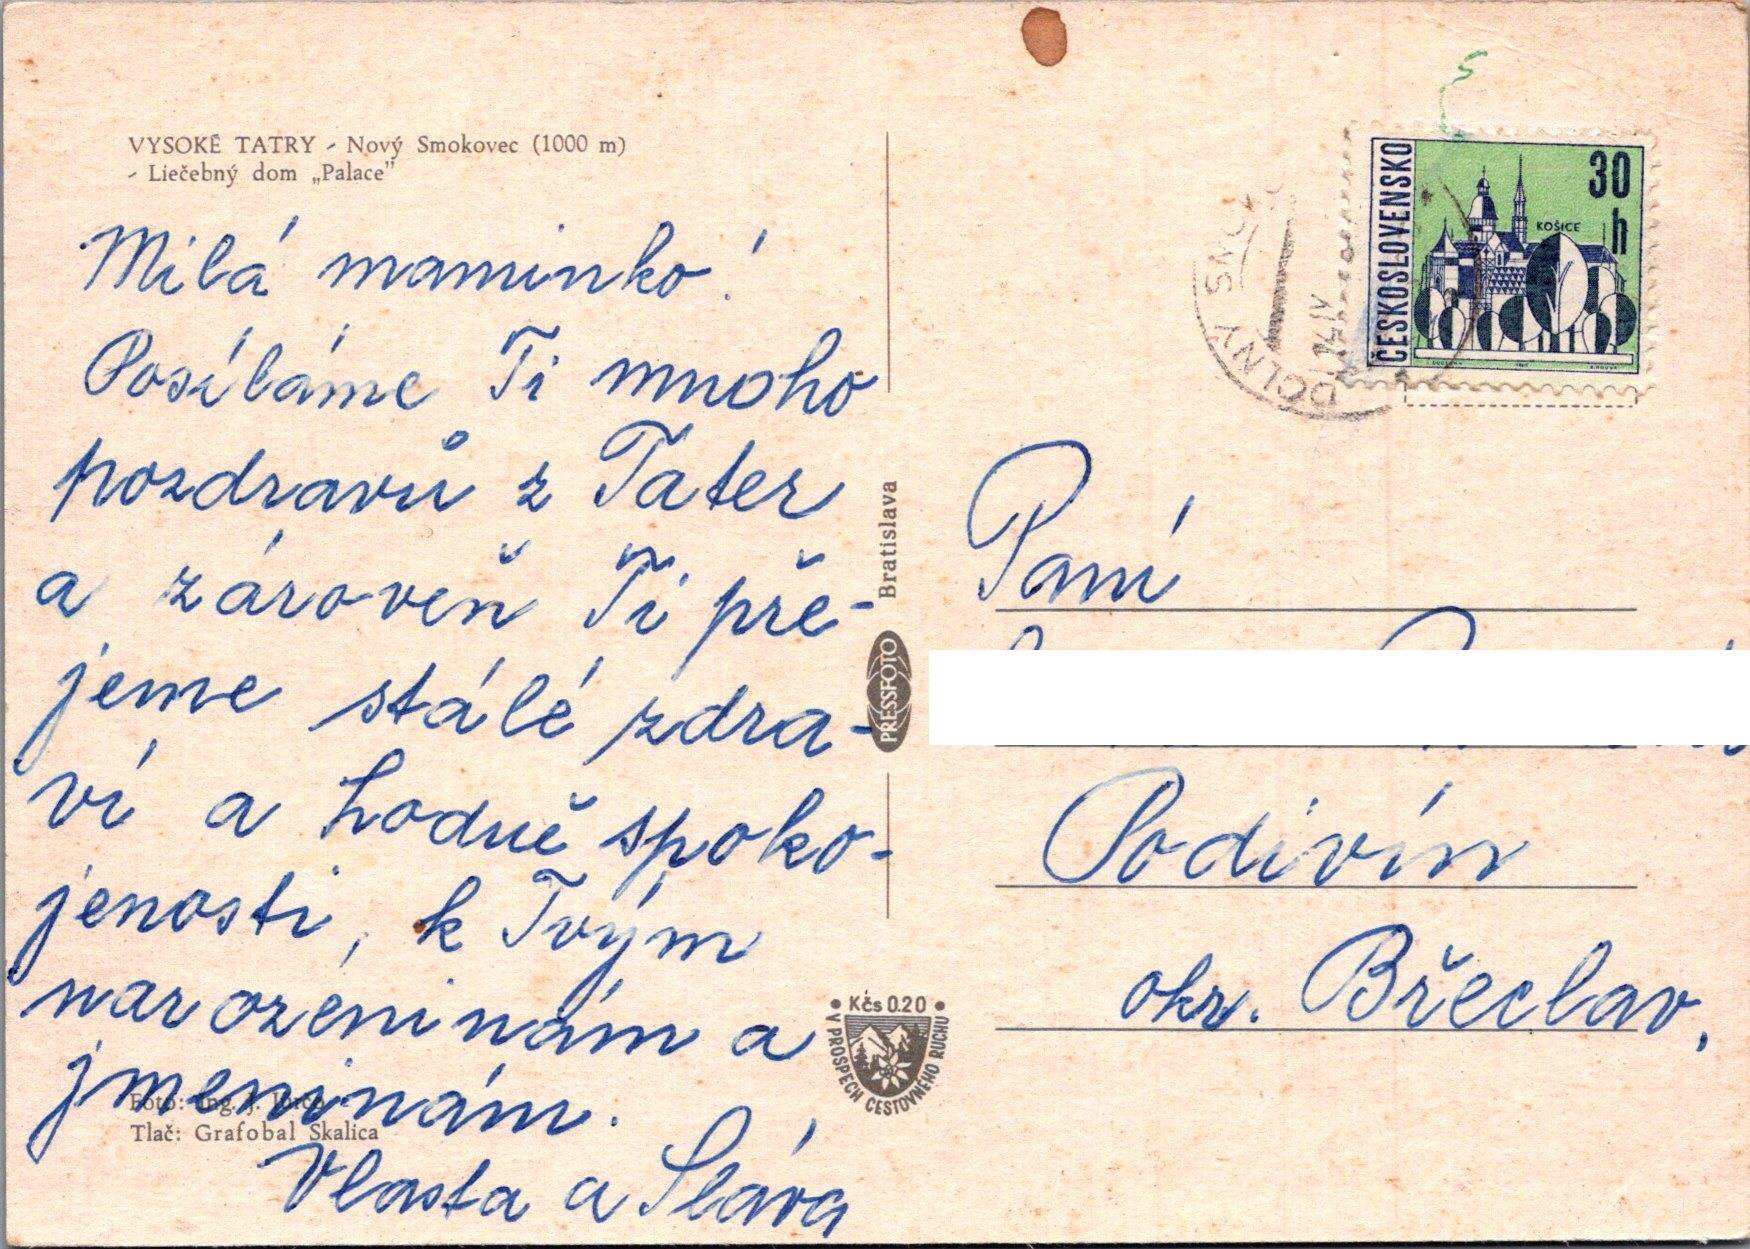 VYSOKÉ TATRY - Nový Smokovec (1000 m)
- Liečebný dom „Palace"
Milá maminko!
Posíláme Ti mnoho
pozdravů z Tater
a zároveň Ti pře-
jeme stálé zdra-
ví a hodně spoko-
jenosti, k Tvým
narozeninám a
jmeninám.
Vlasta a Sláva
Foto: Ing. J.
Tlač: Grafobal Skalica
Bratislava
PRESSFOTO
Kčs 0.20
V PROSPECH CESTOVNÉHO RUCHU
DOLNÝ
ČESKOSLOVENSKO
30
h
KOŠICE
Paní
Podivín
okr. Břeclav,